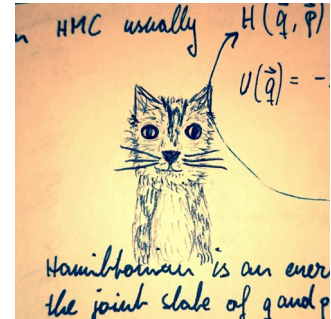 n HMC usually H(q⃗, p⃗)
U(q⃗) = -
Hamiltonian is an ener
the joint state of q and p